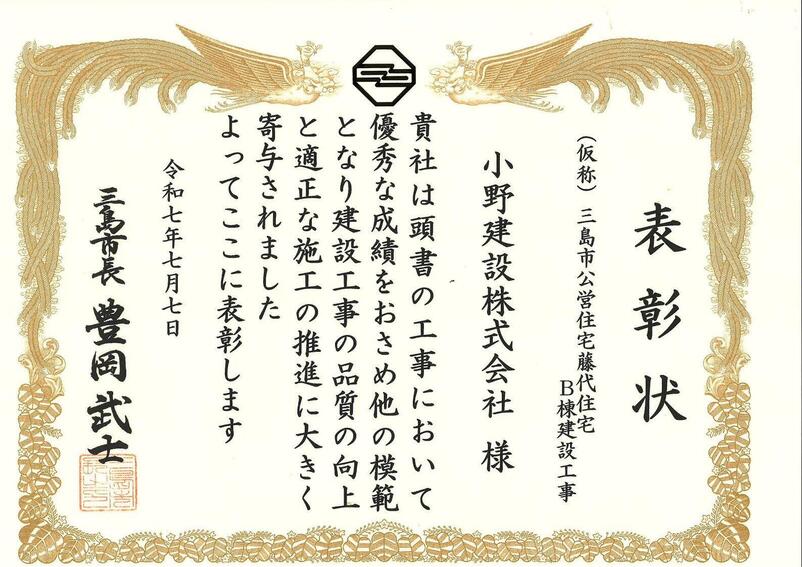 表彰状
（仮称）三島市公営住宅藤代住宅
B棟建設工事
小野建設株式会社 様
貴社は頭書の工事において
優秀な成績をおさめ他の模範
となり建設工事の品質の向上
と適正な施工の推進に大きく
寄与されました
よってここに表彰します
令和七年七月七日
三島市長 豊岡武士